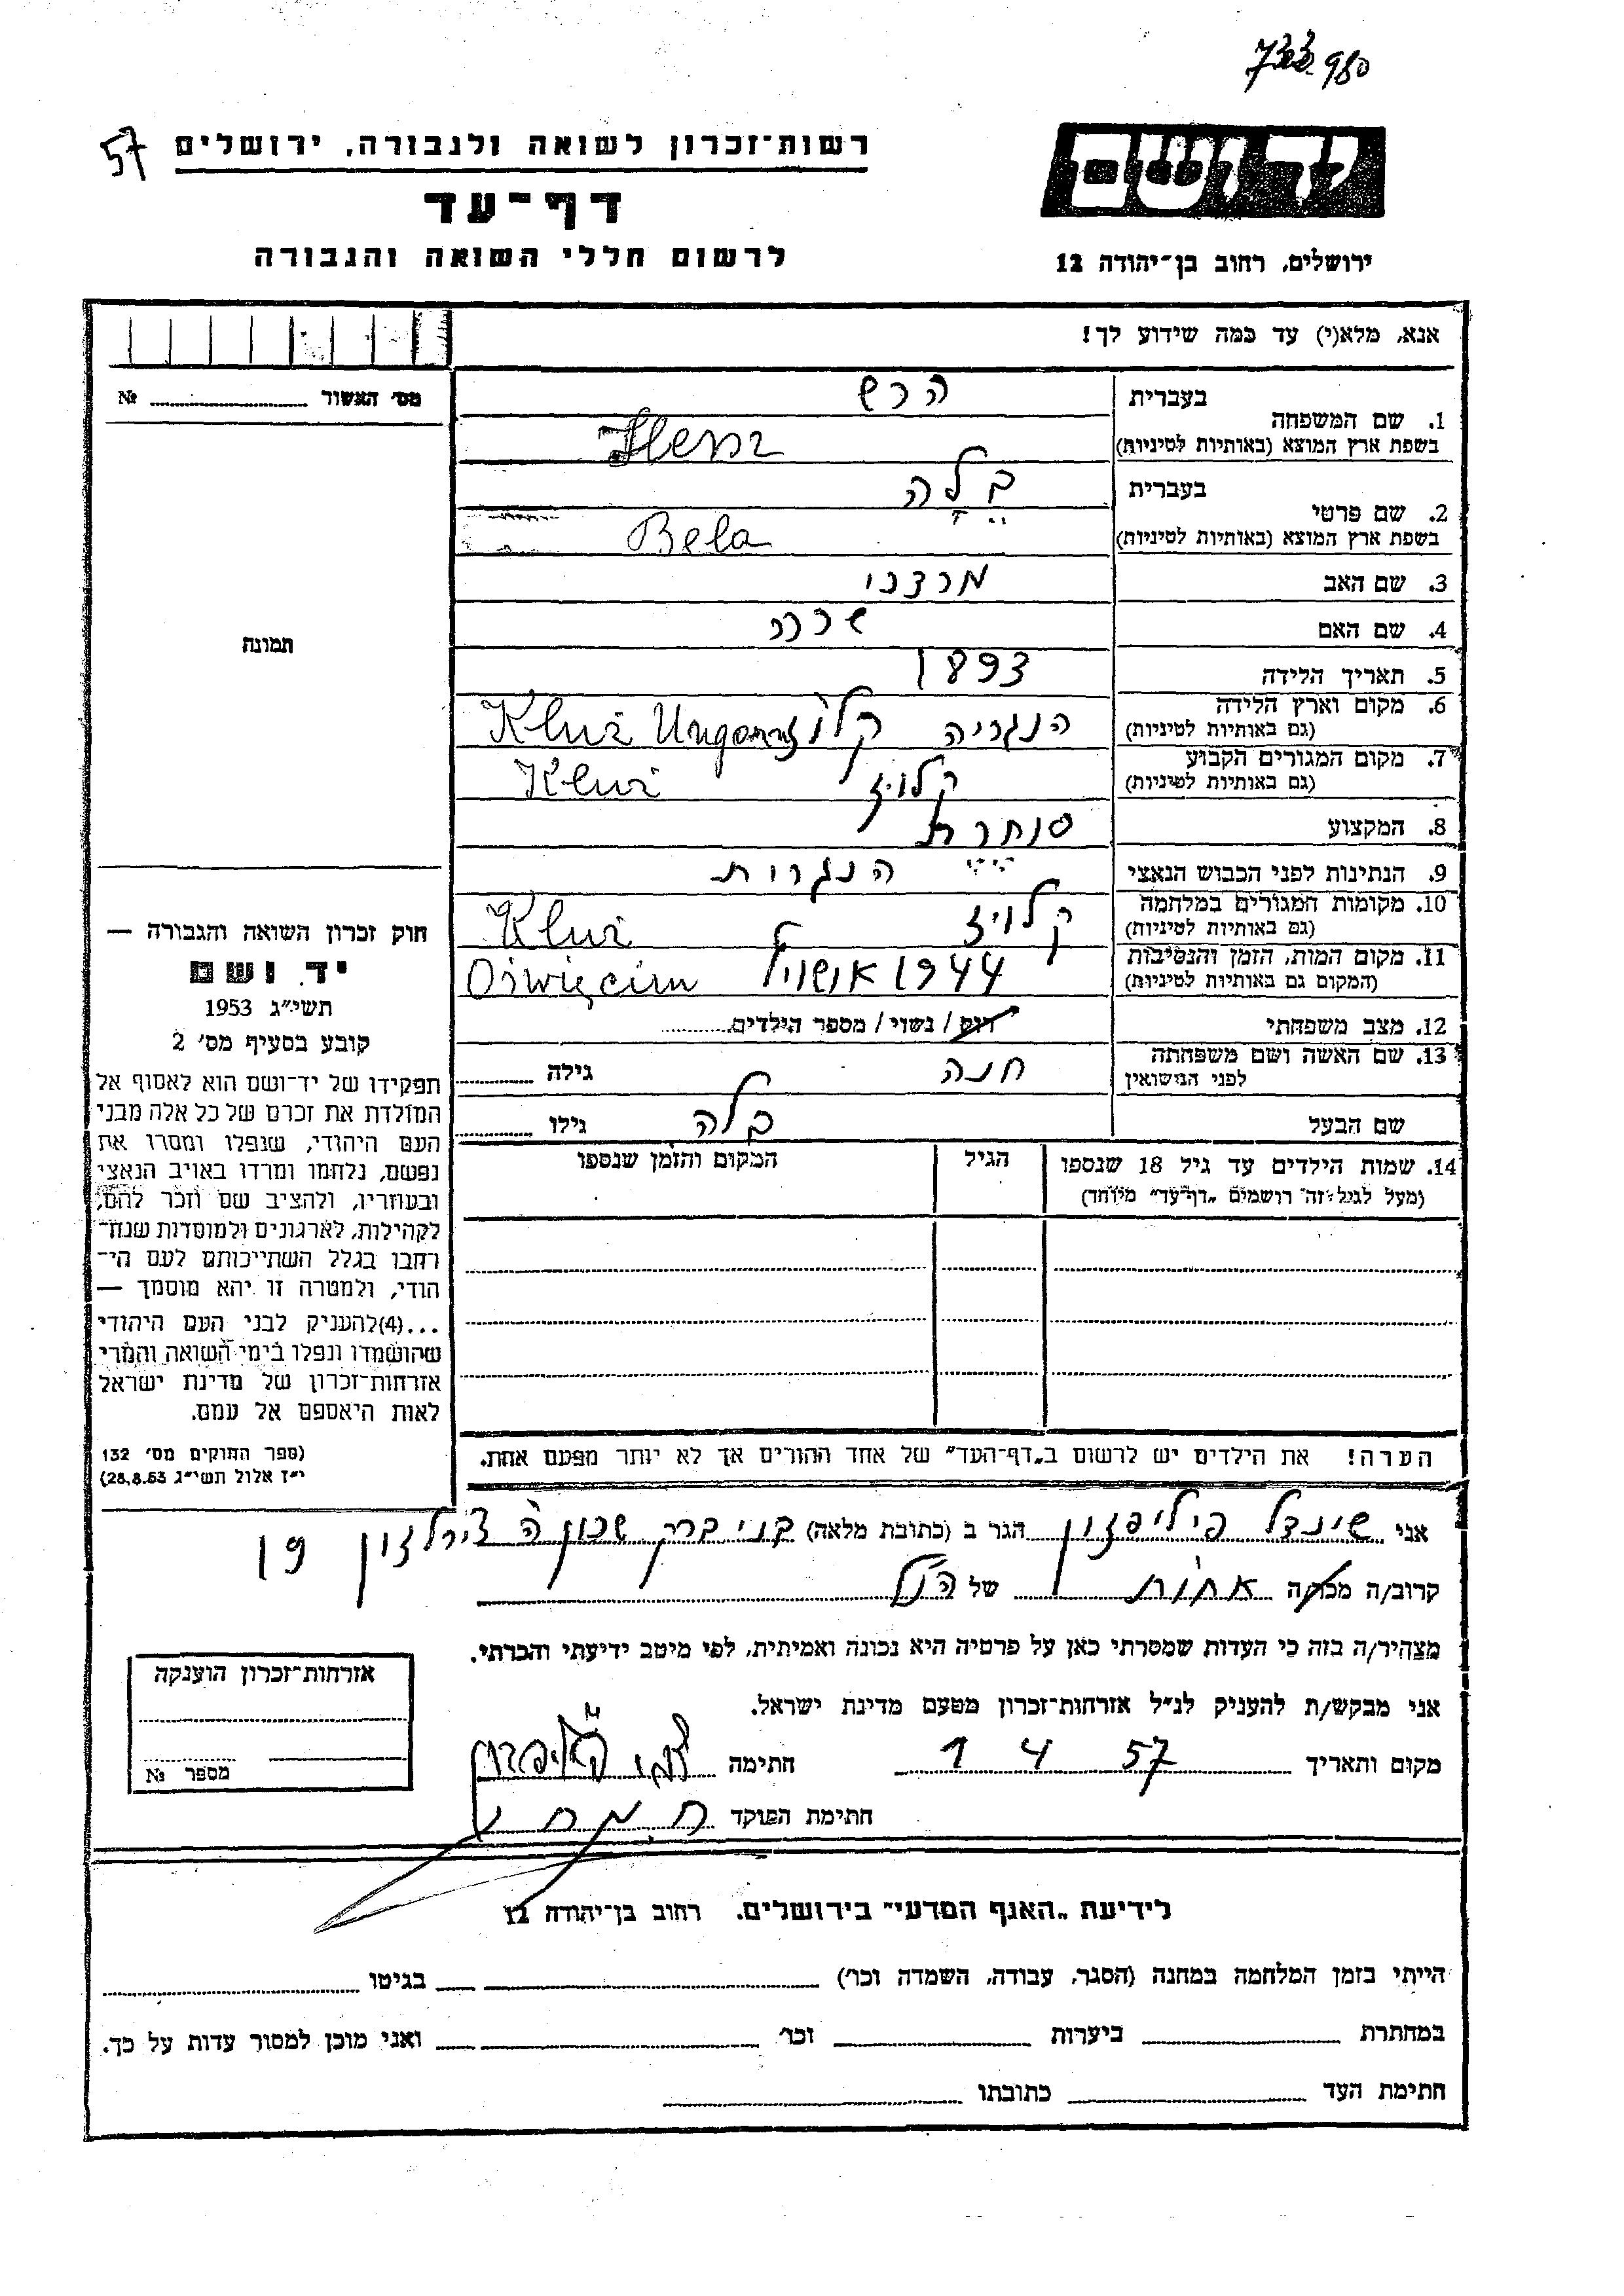 733980
57
רשות־זכרון לשואה ולגבורה, ירושלים
דף־עד
לרשום חללי השואה והגבורה
ידושם
ירושלים, רחוב בן־יהודה 12
אנא, מלא(י) עד כמה שידוע לך!
מס׳ האשור № 
1. שם המשפחה
בעברית הרש
בשפת ארץ המוצא (באותיות לטיניות)
2. שם פרטי
בעברית בלה
בשפת ארץ המוצא (באותיות לטיניות) Bela
3. שם האב מרדכי
4. שם האם שרה
5. תאריך הלידה 1893
6. מקום וארץ הלידה הנגריה
(גם באותיות לטיניות) Kluż
7. מקום המגורים הקבוע קלויז
(גם באותיות לטיניות) Kluż
8. המקצוע סוחרת
9. הנתינות לפני הכבוש הנאצי הנגרית
10. מקומות המגורים במלחמה קלויז
(גם באותיות לטיניות) Kluż
11. מקום המות, הזמן והנסיבות 1944
(המקום גם באותיות לטיניות) Oświęcim
12. מצב משפחתי רווק / נשוי / מספר הילדים
13. שם האשה ושם משפחתה חנה גילה
לפני הנישואין
שם הבעל בלה גילו
14. שמות הילדים עד גיל 18 שנספו הגיל המקום והזמן שנספו
(מעל לגיל זה רושמים „דף־עד״ מיוחד)
הערה! את הילדים יש לרשום ב„דף־העד״ של אחד ההורים אך לא יותר מפעם אחת.
תמונה
חוק זכרון השואה והגבורה —
יד ושם
תשי״ג 1953
קובע בסעיף מס׳ 2
תפקידו של יד־ושם הוא לאסוף אל
המולדת את זכרם של כל אלה מבני
העם היהודי, שנפלו ומסרו את
נפשם, נלחמו ומרדו באויב הנאצי
ובעוזריו, ולהציב שם וזכר להם,
לקהילות, לארגונים ולמוסדות שנח־
רבו בגלל השתייכותם לעם הי־
הודי, ולמטרה זו יהא מוסמך —
...(4)להעניק לבני העם היהודי
שהושמדו ונפלו בימי השואה והמרי
אזרחות־זכרון של מדינת ישראל
לאות היאספם אל עמם.
(ספר החוקים מס׳ 132
י״ז אלול תשי״ג 28.8.53)
אני שינדל פיליפזון הגר ב (כתובת מלאה) בני ברק שכון ה
קרוב/ה מכר/ה אחות של הנ״ל
מצהיר/ה בזה כי העדות שמסרתי כאן על פרטיה היא נכונה ואמיתית, לפי מיטב ידיעתי והכרתי.
אני מבקש/ת להעניק לנ״ל אזרחות־זכרון מטעם מדינת ישראל.
מקום ותאריך 57 4 1 חתימה
חתימת הפוקד
אזרחות־זכרון הוענקה
מספר №
לידיעת „האגף המדעי״ בירושלים, רחוב בן־יהודה 12
הייתי בזמן המלחמה במחנה (הסגר, עבודה, השמדה וכו׳) בגיטו
במחתרת ביערות וכו׳ ואני מוכן למסור עדות על כך.
חתימת העד כתובתו